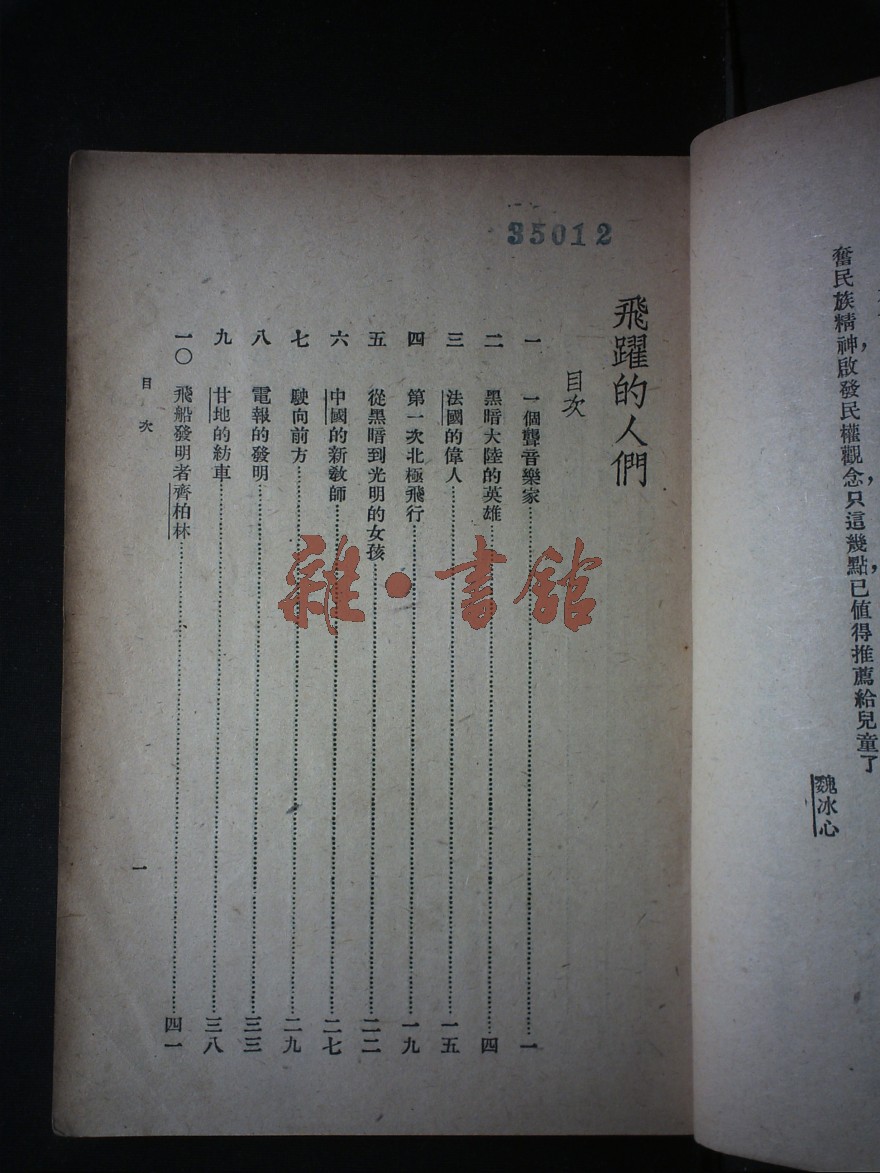 奮民族精神，啟發民權觀念，只這幾點，已值得推薦給兒童了
魏冰心
35012
飛躍的人們
目次
一 一個聾音樂家……一
二 黑暗大陸的英雄……四
三 法國的偉人……一五
四 第一次北極飛行……一九
五 從黑暗到光明的女孩……二二
六 中國的新教師……二七
七 駛向前方……二九
八 電報的發明……三三
九 甘地的紡車……三八
一〇 飛船發明者齊柏林……四一
目次
一
雜·書館